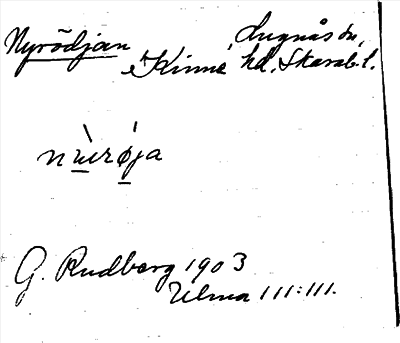 Nyrödjan Lugnås sn,
Kinne hd. Skarab. l.
nu̱rø̱ja
G. Rudberg 1903
Ulma 111:111.